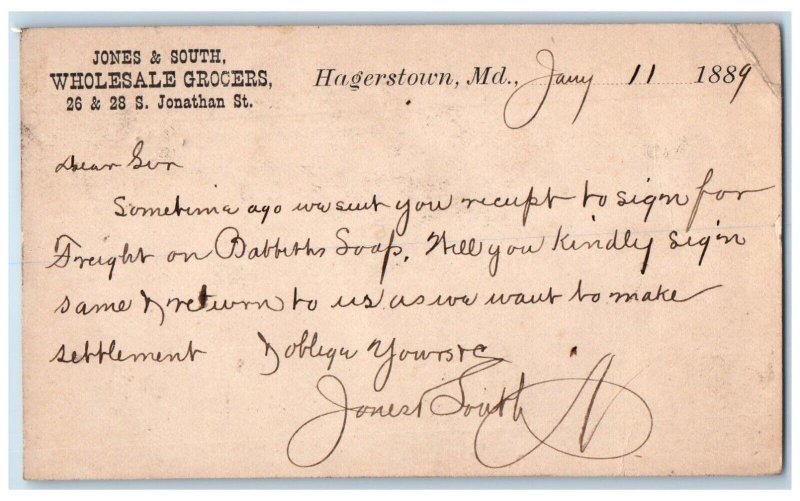 JONES & SOUTH,
WHOLESALE GROCERS,
26 & 28 S. Jonathan St.
Hagerstown, Md., Jany 11 1889
Dear Sir
Sometime ago we sent you receipt to sign for
Freight on Babbiths Soap. Will you Kindly sign
same & return to us as we want to make
settlement & oblige Yours &c
Jones & South